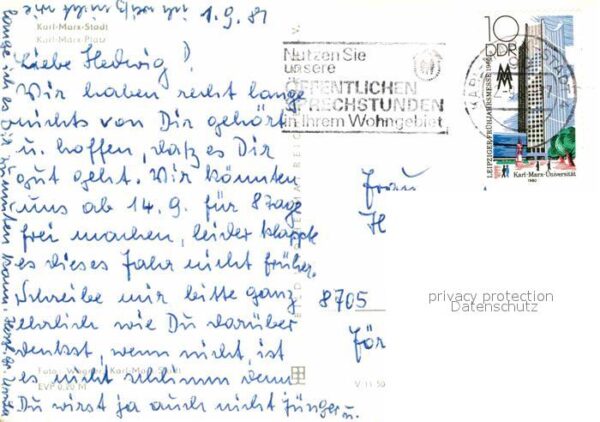 1.9.81
Karl-Marx-Stadt
Karl-Marx-Platz
Liebe Hedwig!
Wir haben recht lange
nichts von Dir gehört
u. hoffen, daß es Dir
gut geht. Wir könnten
uns ab 14.9. für 8 Tage
frei machen, leider klappte
es dieses Jahr nicht früher.
Schreibe mir bitte ganz
ehrlich wie Du darüber
denkst, wenn nicht, ist
es nicht schlimm denn
Du wirst ja auch nicht jünger u.
lange ich es Dir zumuten kann. Herzl. Gr.
Foto: Karl-Marx-Stadt
EVP 0,20 M
V 11 50
Nutzen Sie
unsere
ÖFFENTLICHEN
SPRECHSTUNDEN
in Ihrem Wohngebiet
10
DDR
LEIPZIGER FRÜHJAHRSMESSE 1980
Karl-Marx-Universität
1980
Frau
H
8705
privacy protection
Datenschutz